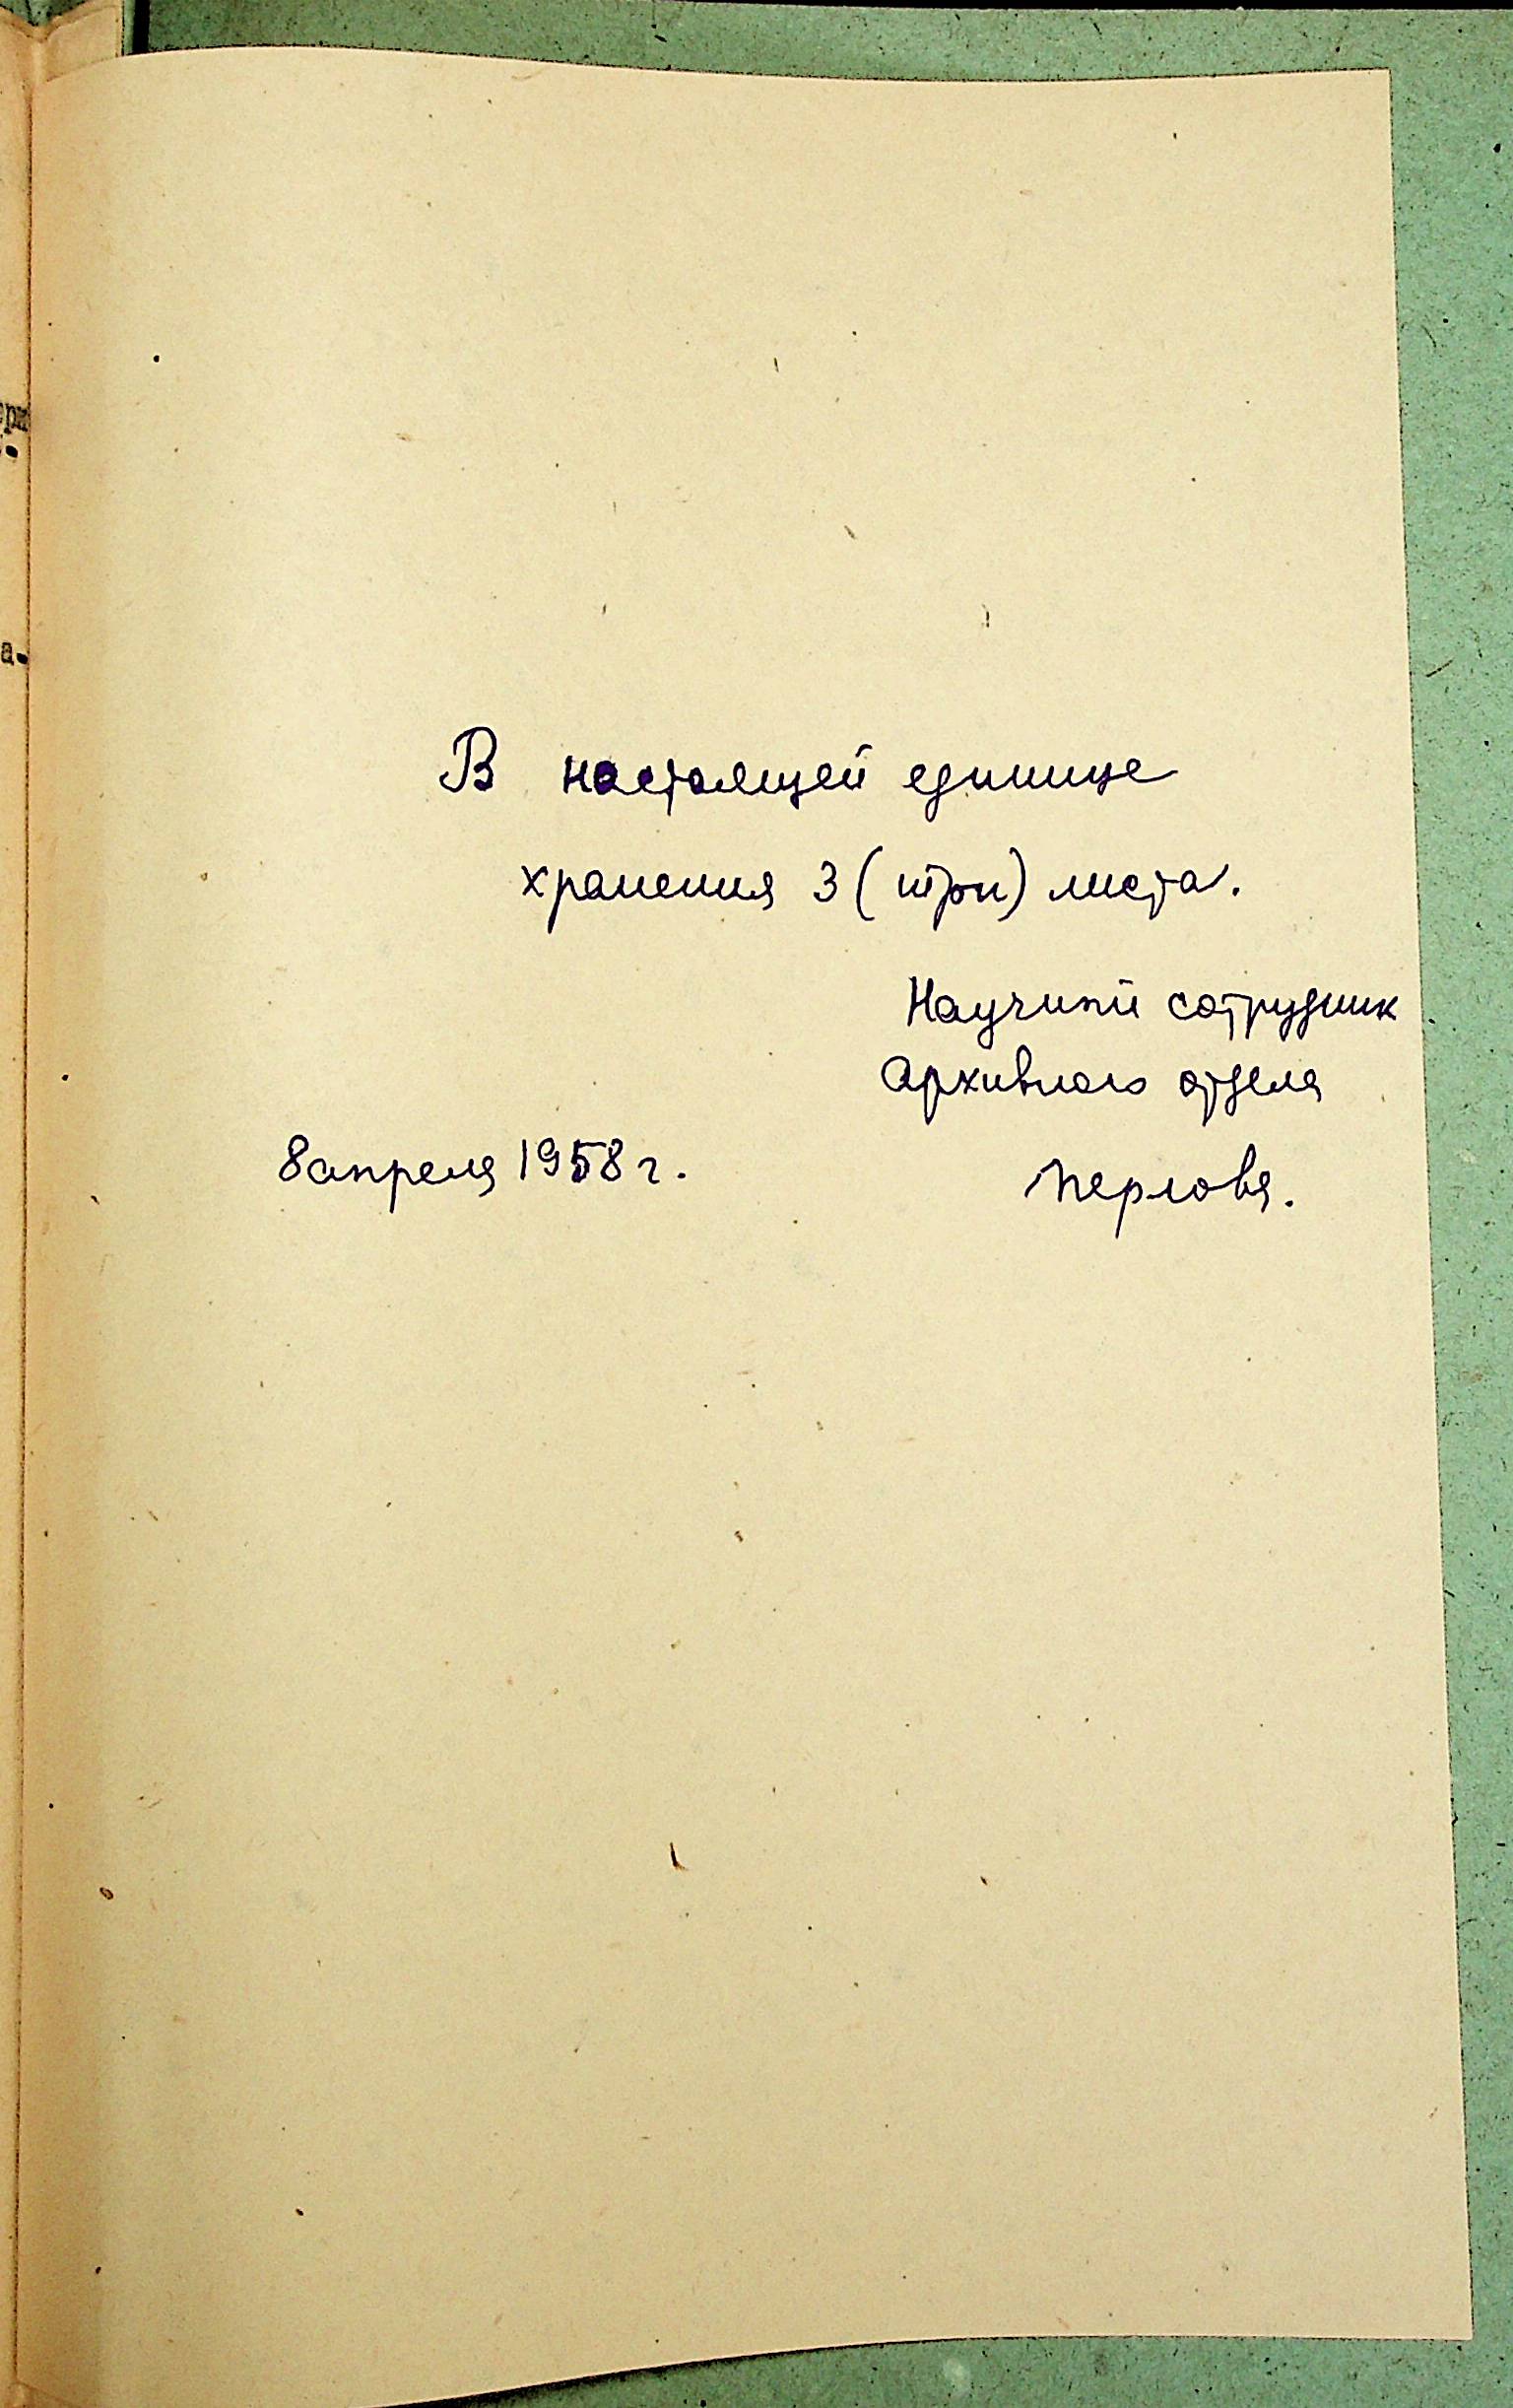 В настоящей единице
хранения 3 (три) листа.
Научный сотрудник
Архивного отдела
8 апреля 1958 г.
Перлова.